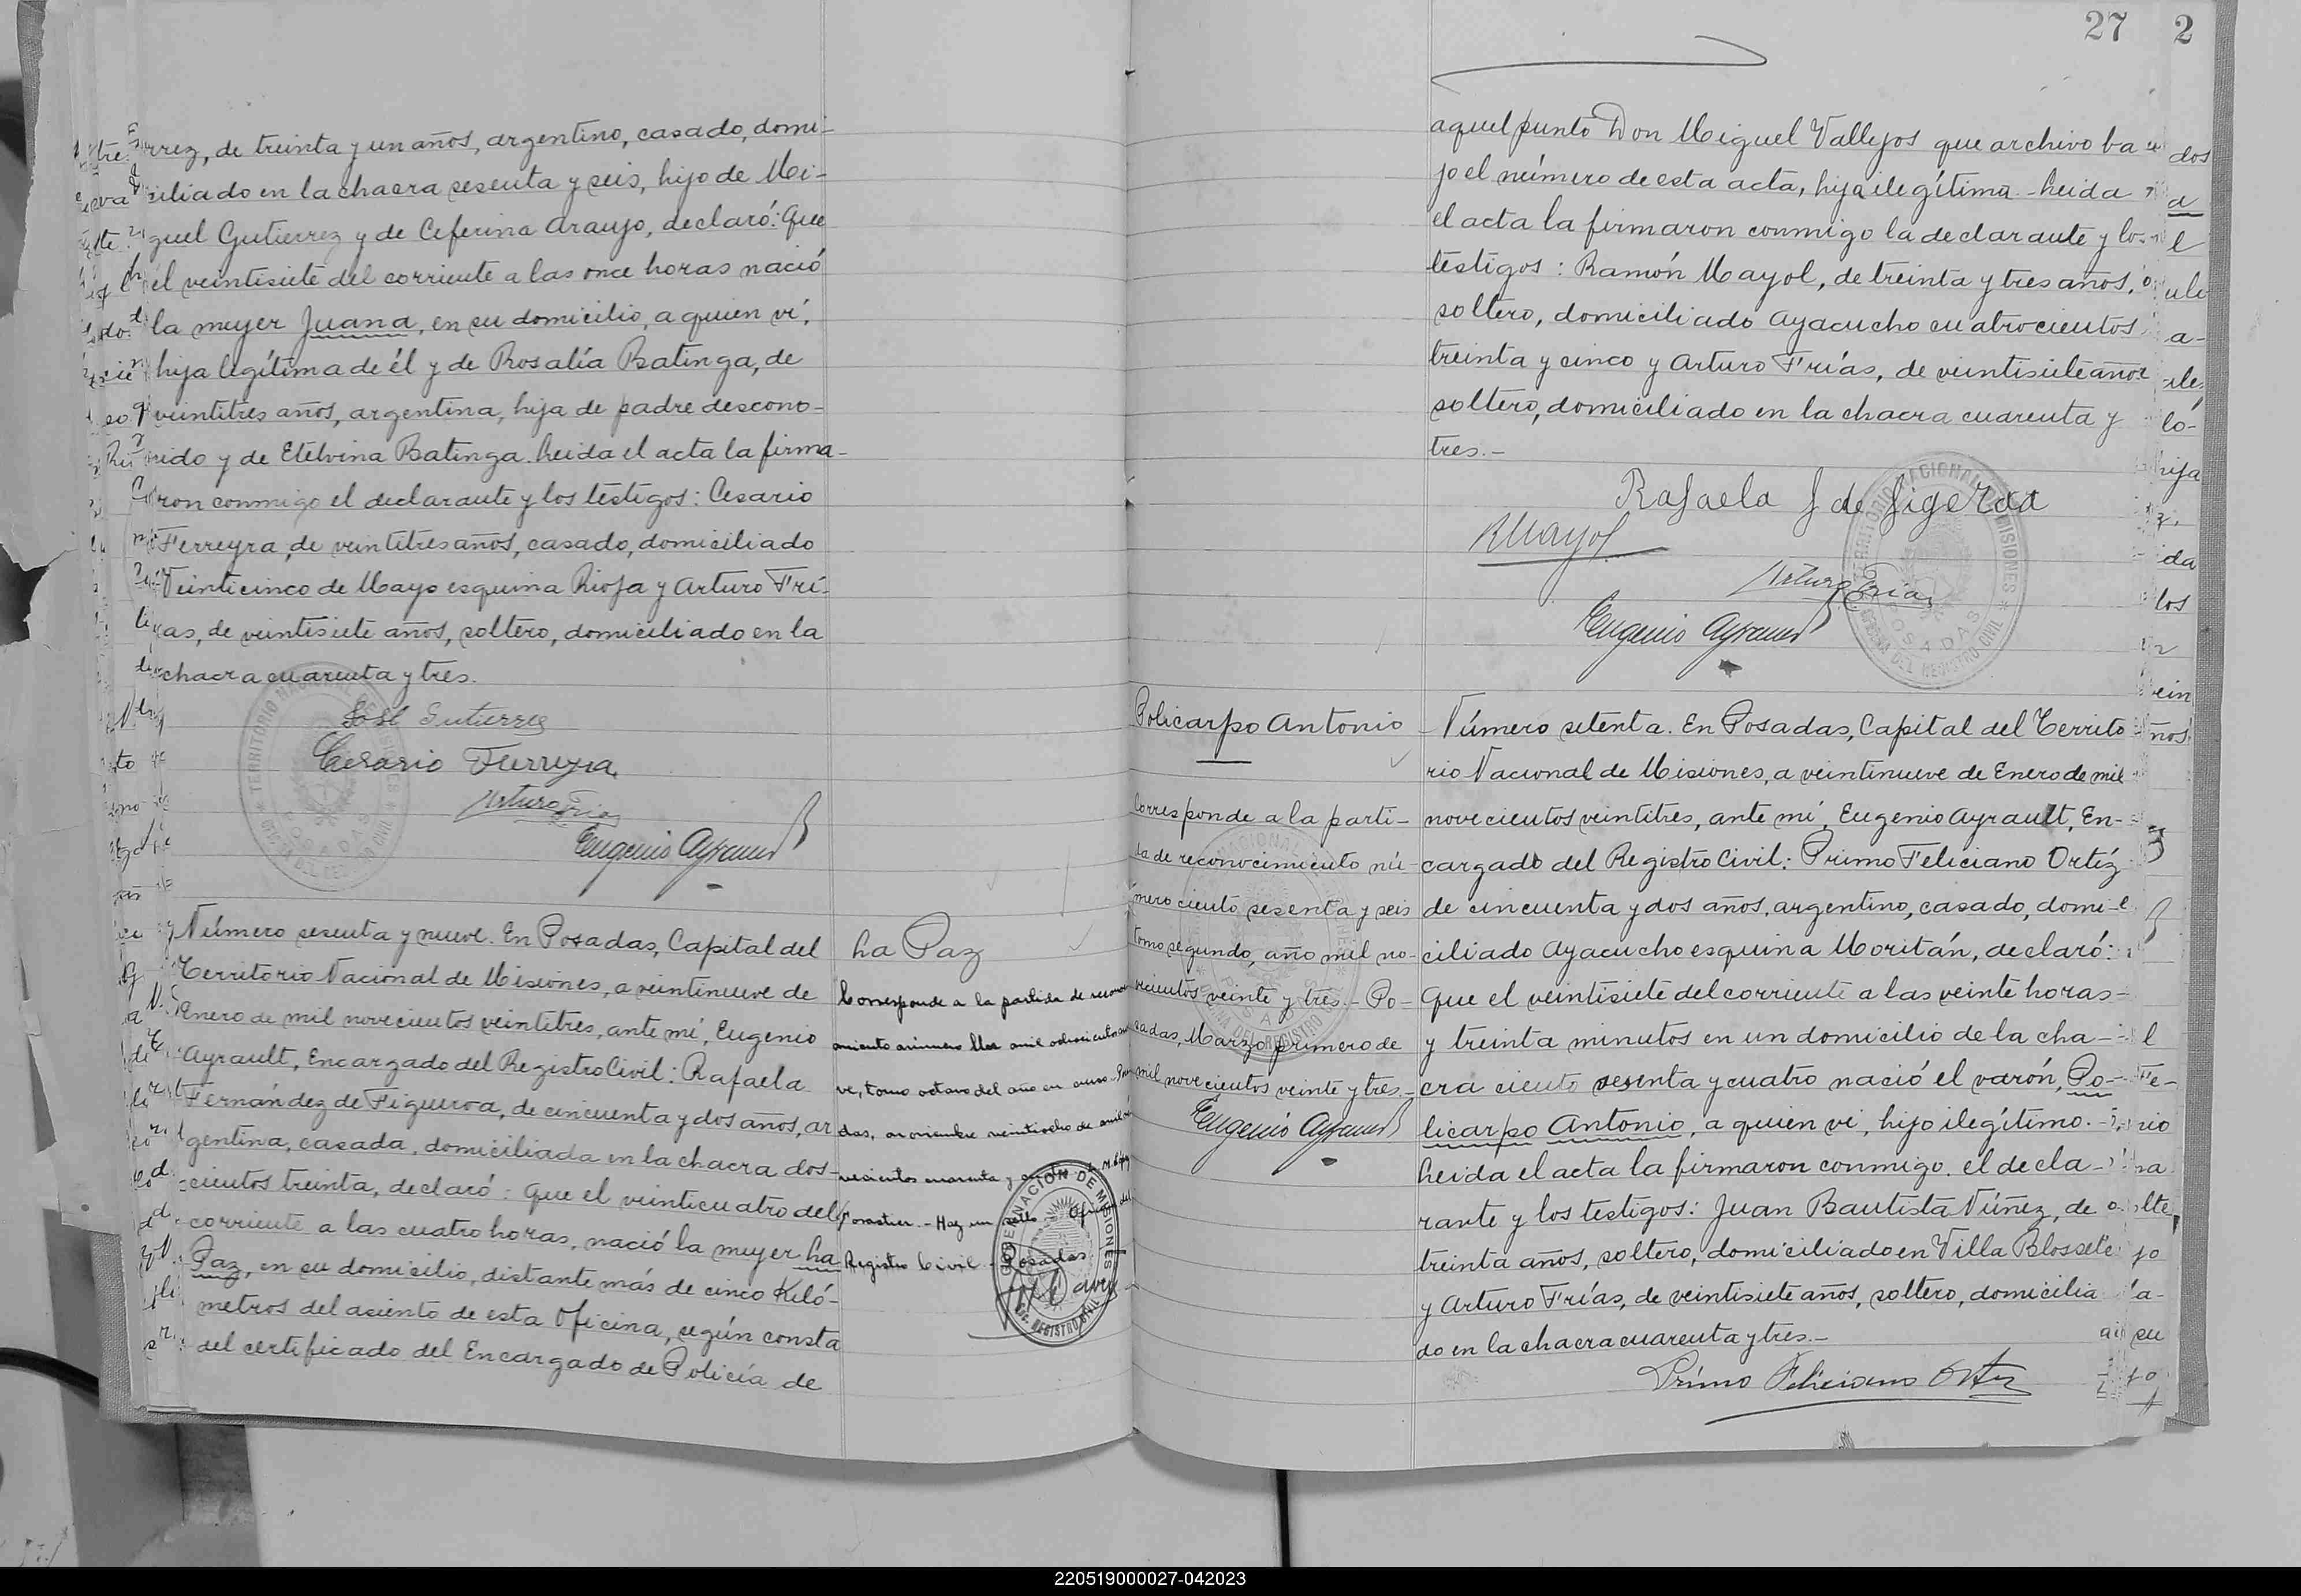 rrez, de treinta y un años, argentino, casado, domi-
ciliado en la chacra sesenta y seis, hijo de Mi-
guel Gutierrez y de Ceferina Araujo, declaró: Que
el veintisiete del corriente a las once horas nació
la mujer Juana, en su domicilio, a quien ví,
hija legítima de él y de Rosalía Batinga, de
veintitres años, argentina, hija de padre descono-
cido y de Etelvina Batinga. Leida el acta la firma-
ron conmigo el declarante y los testigos: Cesario
Ferreyra, de veintitres años, casado, domiciliado
Veinticinco de Mayo esquina Rioja y Arturo Frí-
as, de veintisiete años, soltero, domiciliado en la
chacra cuarenta y tres.
José Gutierrez
Cesario Ferreyra
Arturo Frias
Eugenio Ayrault
Número sesenta y nueve. En Posadas, Capital del
Territorio Nacional de Misiones, a veintinueve de
Enero de mil novecientos veintitres, ante mí, Eugenio
Ayrault, Encargado del Registro Civil: Rafaela
Fernández de Figueroa, de cincuenta y dos años, ar
gentina, casada, domiciliada en la chacra dos-
cientos treinta, declaró: Que el veinticuatro del
corriente a las cuatro horas, nació la mujer La
Paz, en su domicilio, distante más de cinco Kiló-
metros del asiento de esta Oficina, según consta
del certificado del Encargado de Policía de
La Paz
Corresponde a la partida de recono
cimiento número mil ochocientos
ve, tomo octavo del año en curso.
das, noviembre veintiocho de mil
vecientos cuarenta y
Hay un sello Oficina del
Registro Civil - Posadas.
GOBERNACIÓN DE MISIONES
REGISTRO CIVIL
27 2
aquel punto Don Miguel Vallejos que archivo ba
jo el número de esta acta, hija ilegítima. - Leida
el acta la firmaron conmigo la declarante y los
testigos: Ramón Mayol, de treinta y tres años,
soltero, domiciliado Ayacucho cuatrocientos
treinta y cinco y Arturo Frías, de veintisiete años
soltero, domiciliado en la chacra cuarenta y
tres. -
Rafaela f de figeroa
RMayol
Arturo Frias
Eugenio Ayrault
TERRITORIO NACIONAL DE MISIONES
POSADAS
OFICINA DEL REGISTRO CIVIL
Policarpo Antonio
Corresponde a la parti-
da de reconocimiento nú-
mero ciento sesenta y seis
tomo segundo, año mil no-
vecientos veinte y tres. - Po-
sadas, Marzo primero de
mil novecientos veinte y tres. -
Eugenio Ayrault
Número setenta. En Posadas, Capital del Territo
rio Nacional de Misiones, a veintinueve de Enero de mil
novecientos veintitres, ante mí, Eugenio Ayrault, En-
cargado del Registro Civil: Primo Feliciano Ortíz
de cincuenta y dos años, argentino, casado, domi-
ciliado Ayacucho esquina Moritán, declaró:
Que el veintisiete del corriente a las veinte horas-
y treinta minutos en un domicilio de la cha-
cra ciento sesenta y cuatro nació el varón, Po-
licarpo Antonio, a quien ví, hijo ilegítimo. -
Leida el acta la firmaron conmigo. el decla-
rante y los testigos: Juan Bautista Núñez, de
treinta años, soltero, domiciliado en Villa Blosset
y Arturo Frías, de veintisiete años, soltero, domicilia
do en la chacra cuarenta y tres. -
Primo Feliciano Ortiz
220519000027-042023